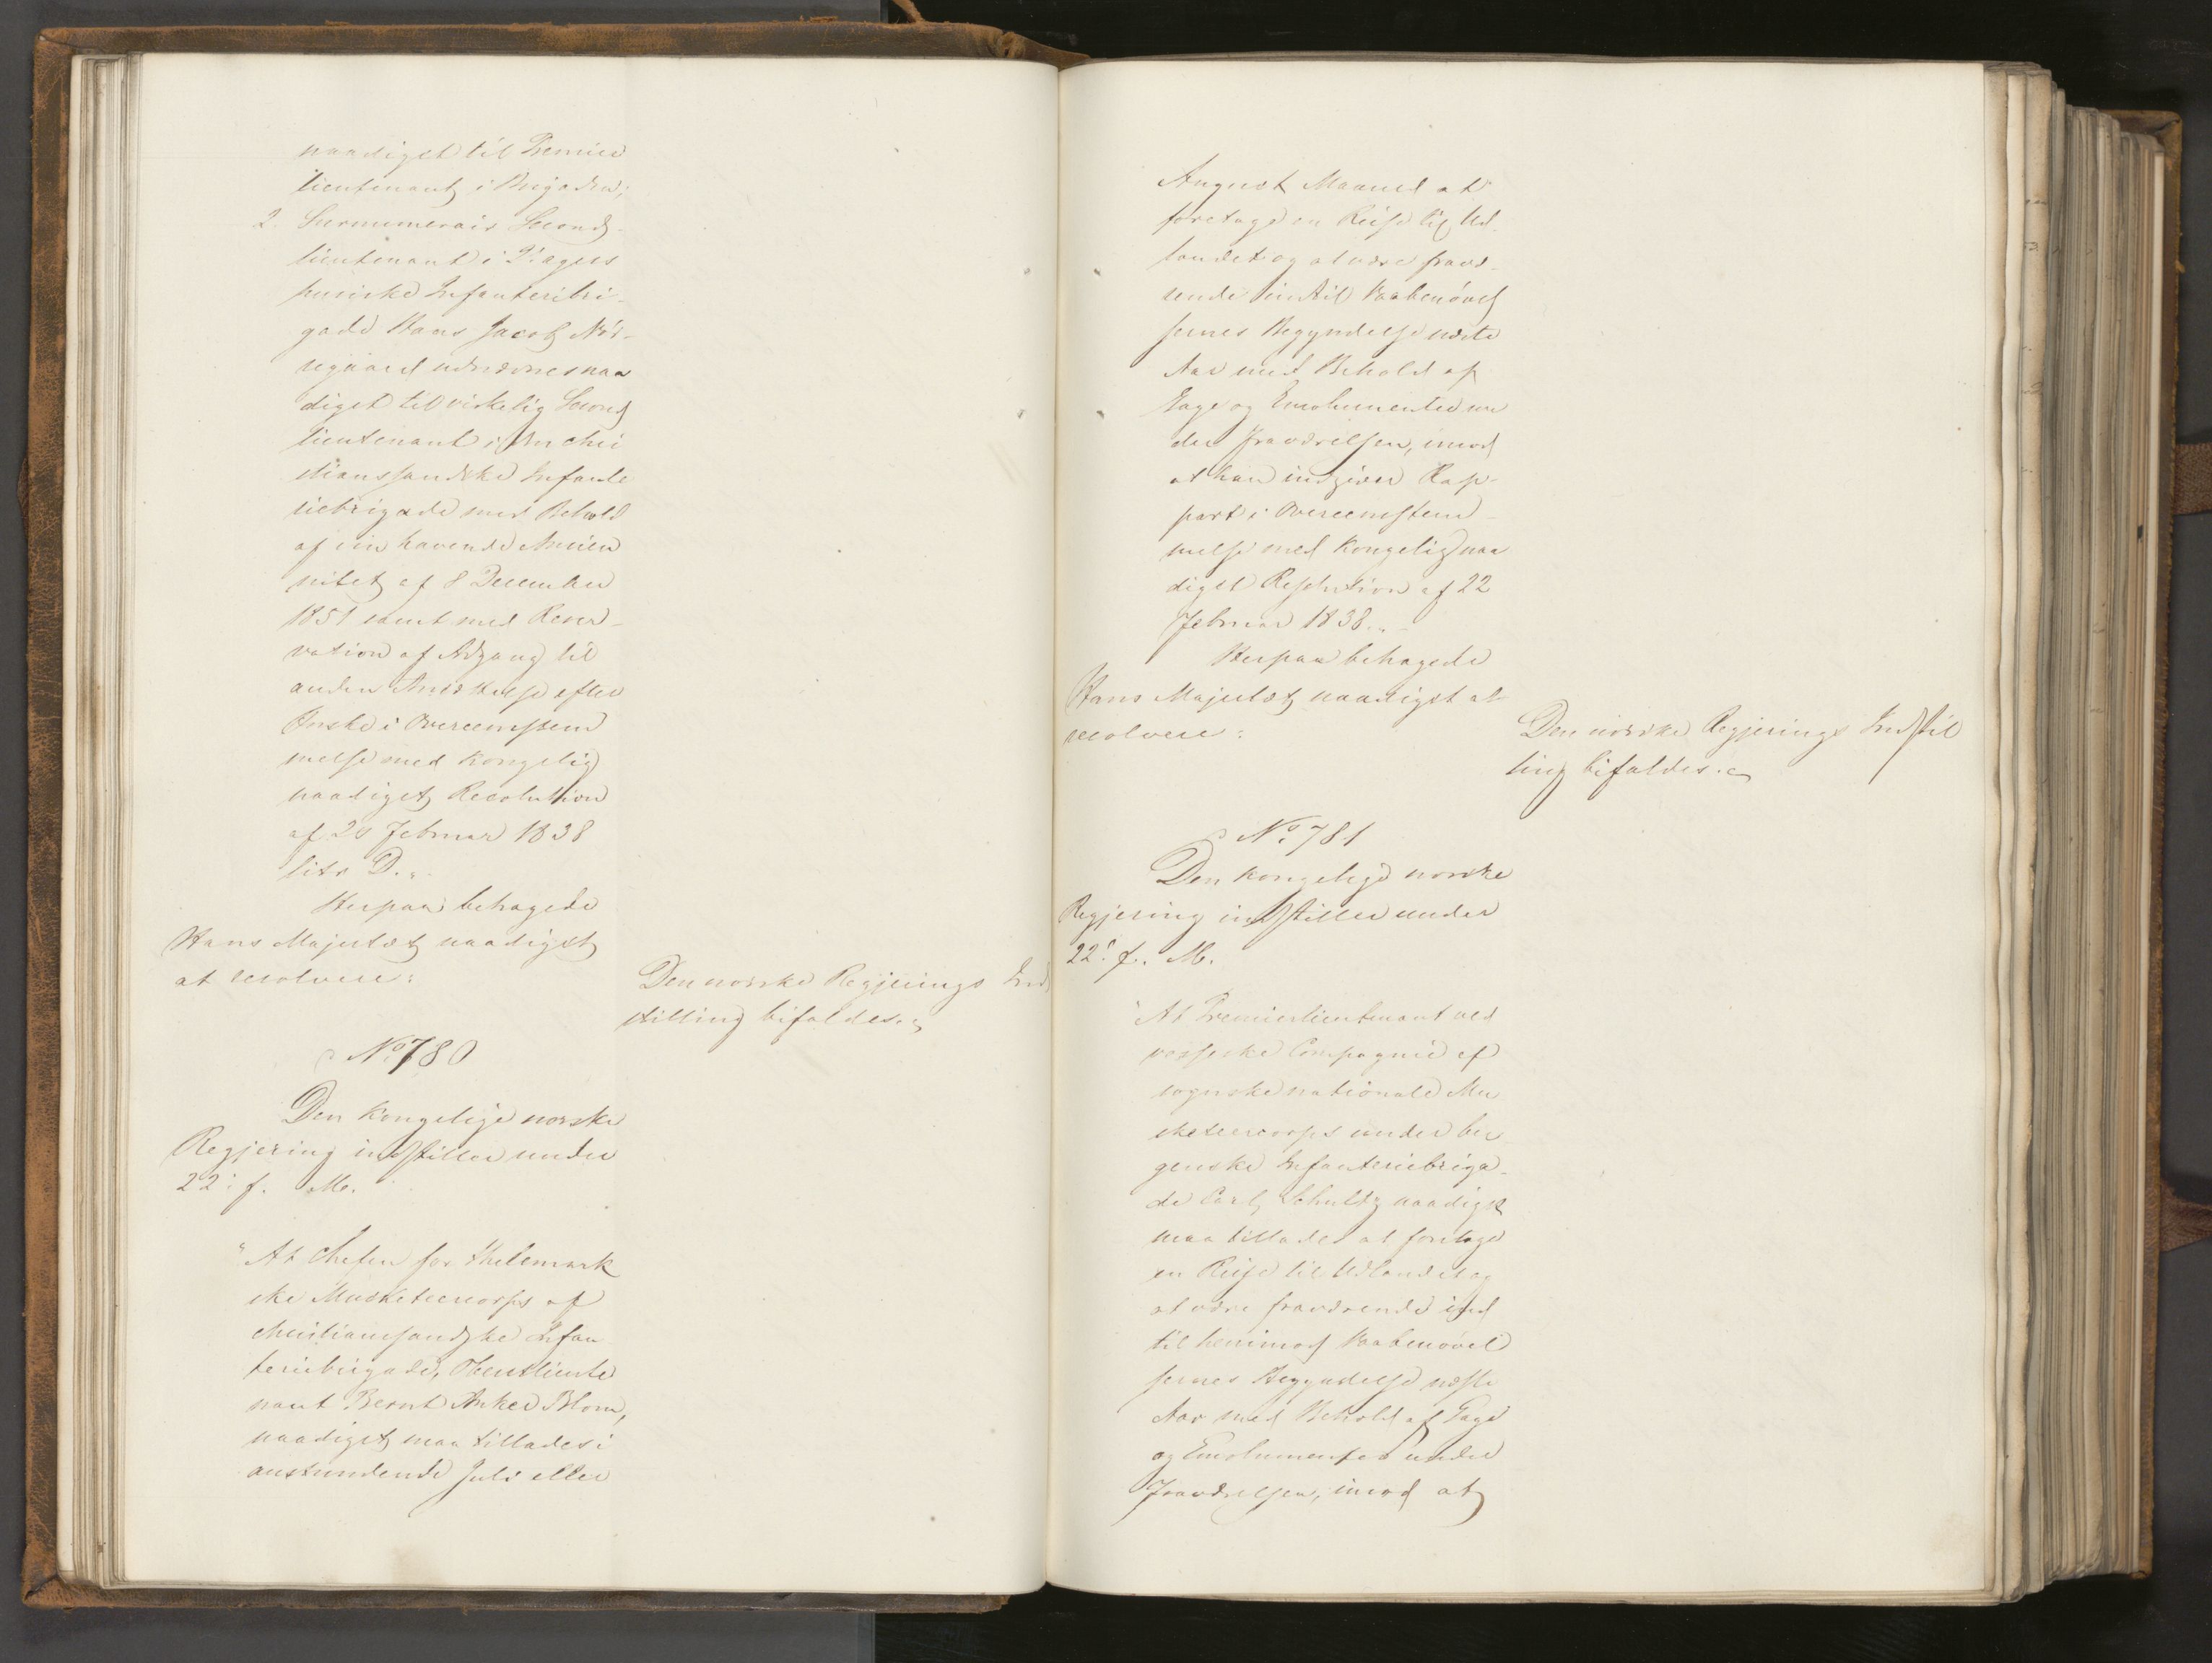 naadigst til Premier
lieutenant i Brigaden;
2. Surnumerair Second-
lieutenant i 2den agers
husiske Infanteribri-
gade Hans Jacob Nør-
regaard udnævnes naa
digst til virkelig Second
lieutenant i den chri
stianssandske Infante
riebrigade med Behold
af sin havende Ancien
nitet af 8 December
1851 samt med Reser-
vation af Adgang til
anden Ansættelse efter
Ønske i Overeensstem
melse med Kongelig
naadigst Resolution
af 20 Februar 1838
litr D. "
Herpaa behagede
Hans Majestæt naadigst
at resolvere:
Den norske Regjerings Ind
stilling bifaldes.
No. 780
Den Kongelige norske
Regjering indstiller under
22: f. M.
"At Chefen for thelemark
ske Musketeercorps af
christianssandske Infan
teriebrigade, Oberstlieute
nant Bernt Anker Blom,
naadigst maa tillades i
anstundende Juli eller
August Maaned at
foretage en Reise til Ud-
landet og at være fravæ-
rende indtil Vaabenøvel
sernes Begyndelse næste
Aar med Behold af
Gage og Emolumenter un
der Fraværelsen, imod
at han indgiver Rap-
port i Overeensstem-
melse med Kongelig naa
digst Resolution af 22
Februar 1838. "
Herpaa behagede
Hans Majestæt naadigst at
resolvere:
Den norske Regjerings Indstil
ling bifaldes.
No. 781
Den kongelige norske
Regjering indstiller under
22: f. M.
"At Premierlieutenant ved
vossiske Compagnie af
sognske nationale Mu
sketeercorps under ber
genske Infanteriebriga-
de Carl Schultz naadigst
maa tillades at foretage
en Reise til Udlandet og
at være fraværende ind
til henimod Vaabenøvel
sernes Begyndelse næste
Aar med Behold af Gage
og Emolumenter under
Fraværelsen, imod at